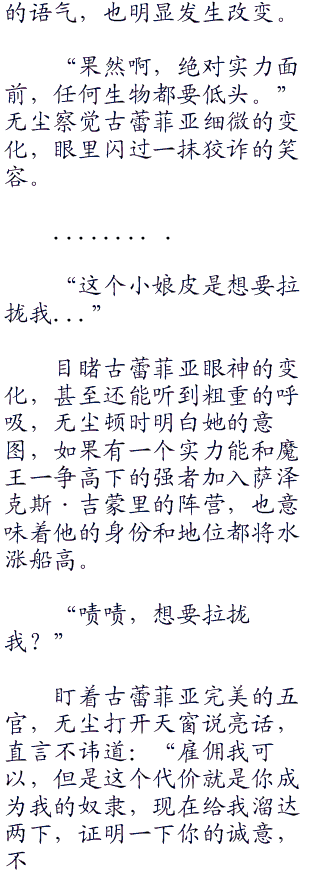 的语气，也明显发生改变。
“果然啊，绝对实力面
前，任何生物都要低头。”
无尘察觉古蕾菲亚细微的变
化，眼里闪过一抹狡诈的笑
容。
........ .
“这个小娘皮是想要拉
拢我...”
目睹古蕾菲亚眼神的变
化，甚至还能听到粗重的呼
吸，无尘顿时明白她的意
图，如果有一个实力能和魔
王一争高下的强者加入萨泽
克斯·吉蒙里的阵营，也意
味着他的身份和地位都将水
涨船高。
“啧啧，想要拉拢
我？”
盯着古蕾菲亚完美的五
官，无尘打开天窗说亮话，
直言不讳道：“雇佣我可
以，但是这个代价就是你成
为我的奴隶，现在给我溜达
两下，证明一下你的诚意，
不